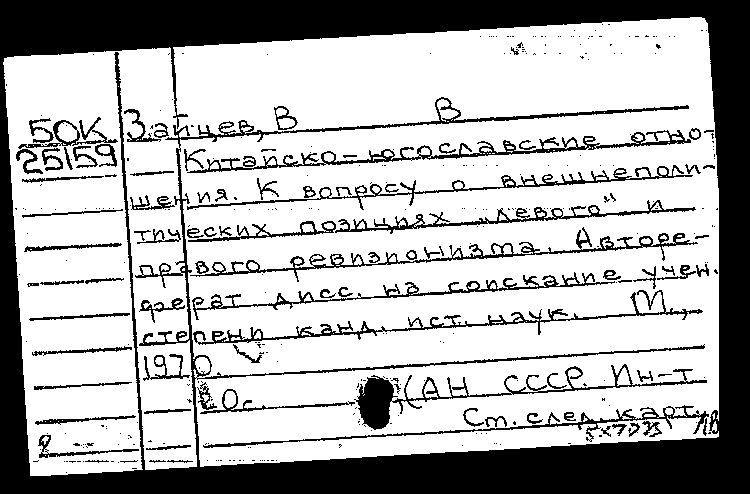 50К Зайцев, В В
25159 Китайско-югославские отно-
шения. К вопросу о внешнеполи-
тических позициях „левого" и
правого ревизионизма. Авторе-
ферат дисс. на соискание учен.
степени канд. ист. наук. М.,
1970.
20с. , (АН СССР. Ин-т
См. след. карт.